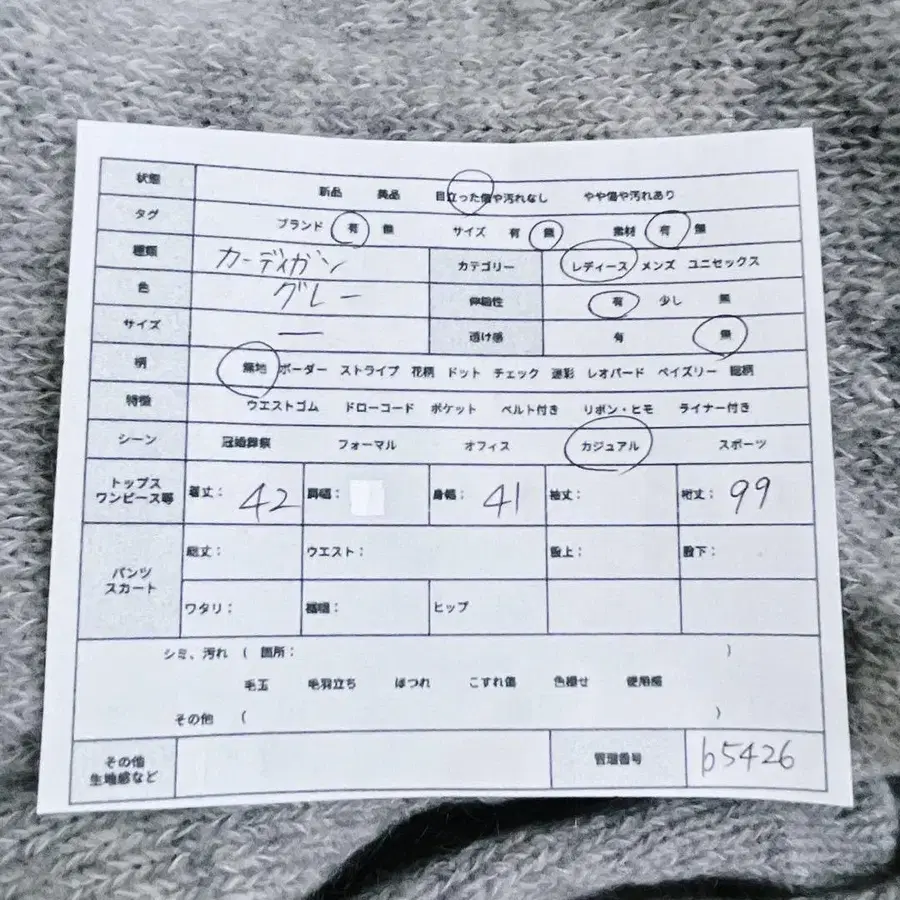 状態 新品 美品 目立った傷や汚れなし やや傷や汚れあり
タグ ブランド 有 無 サイズ 有 無 素材 有 無
種類 カーディガン カテゴリー レディース メンズ ユニセックス
色 グレー 伸縮性 有 少し 無
サイズ ー 透け感 有 無
柄 無地 ボーダー ストライプ 花柄 ドット チェック 迷彩 レオパード ペイズリー 総柄
特徴 ウエストゴム ドローコード ポケット ベルト付き リボン・ヒモ ライナー付き
シーン 冠婚葬祭 フォーマル オフィス カジュアル スポーツ
トップス
ワンピース等 着丈: 42 肩幅: 身幅: 41 袖丈: 裄丈: 99
パンツ
スカート 総丈: ウエスト: 股上: 股下:
ワタリ: 裾幅: ヒップ
シミ、汚れ ( 箇所: )
毛玉 毛羽立ち ほつれ こすれ傷 色褪せ 使用感
その他 ( )
その他
生地感など 管理番号 b5426